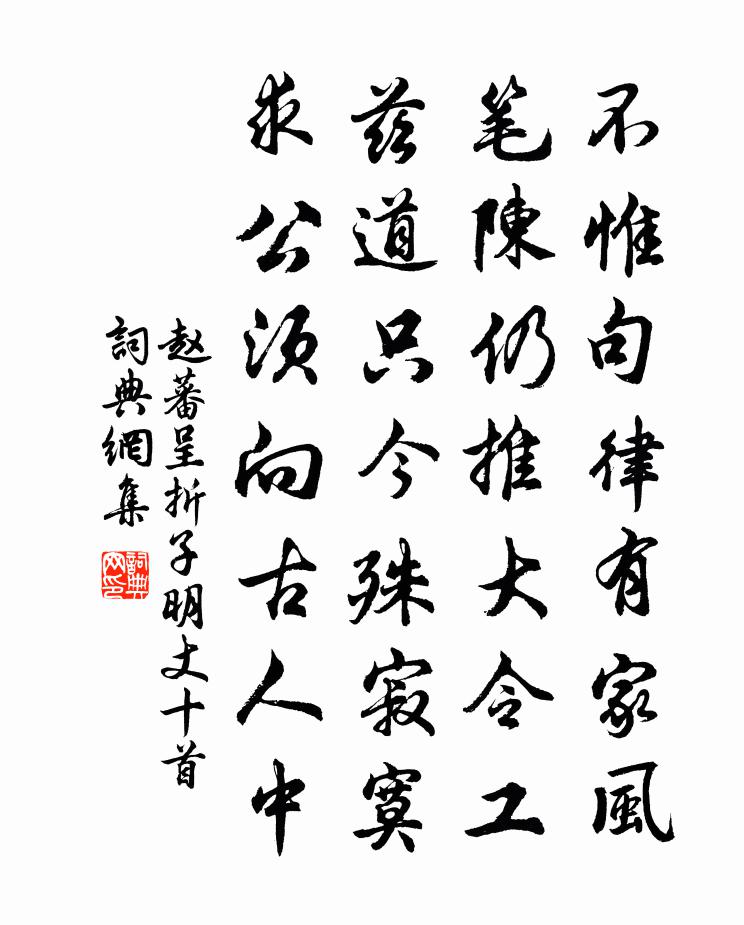 不惟句律有家風
笔陳仍推大令工
兹道只今殊寂寞
求公须向古人中
赵蕃呈折子明丈十首
詞典網集
詞典网印